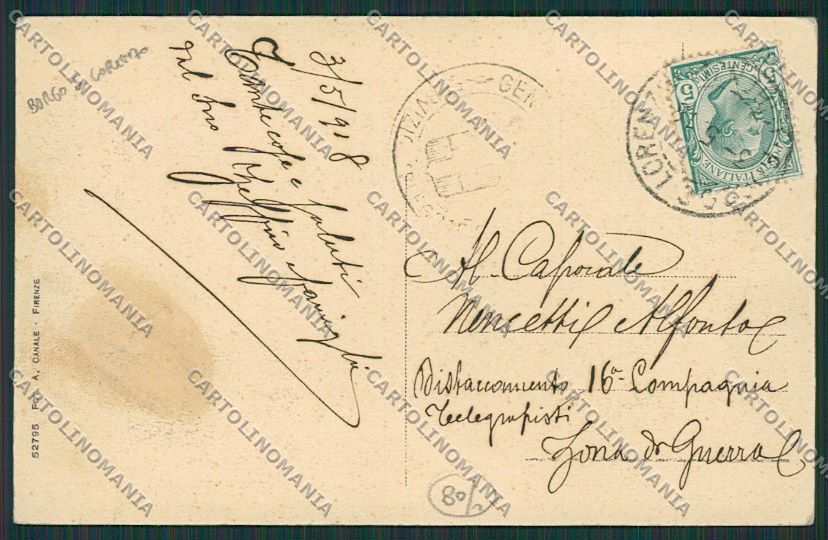 BORGO S. LORENZO
3/5/918
Tante cose e saluti
dal suo Beppino e famiglia
Al Caporale
Nencetti Alfonso
Distaccamento 16ª Compagnia
Telegrafisti
Zona di Guerra
5 CENTESIMI 5
POSTE ITALIANE
LORENZO
52795 FOT. A. CANALE - FIRENZE
CARTOLINOMANIA